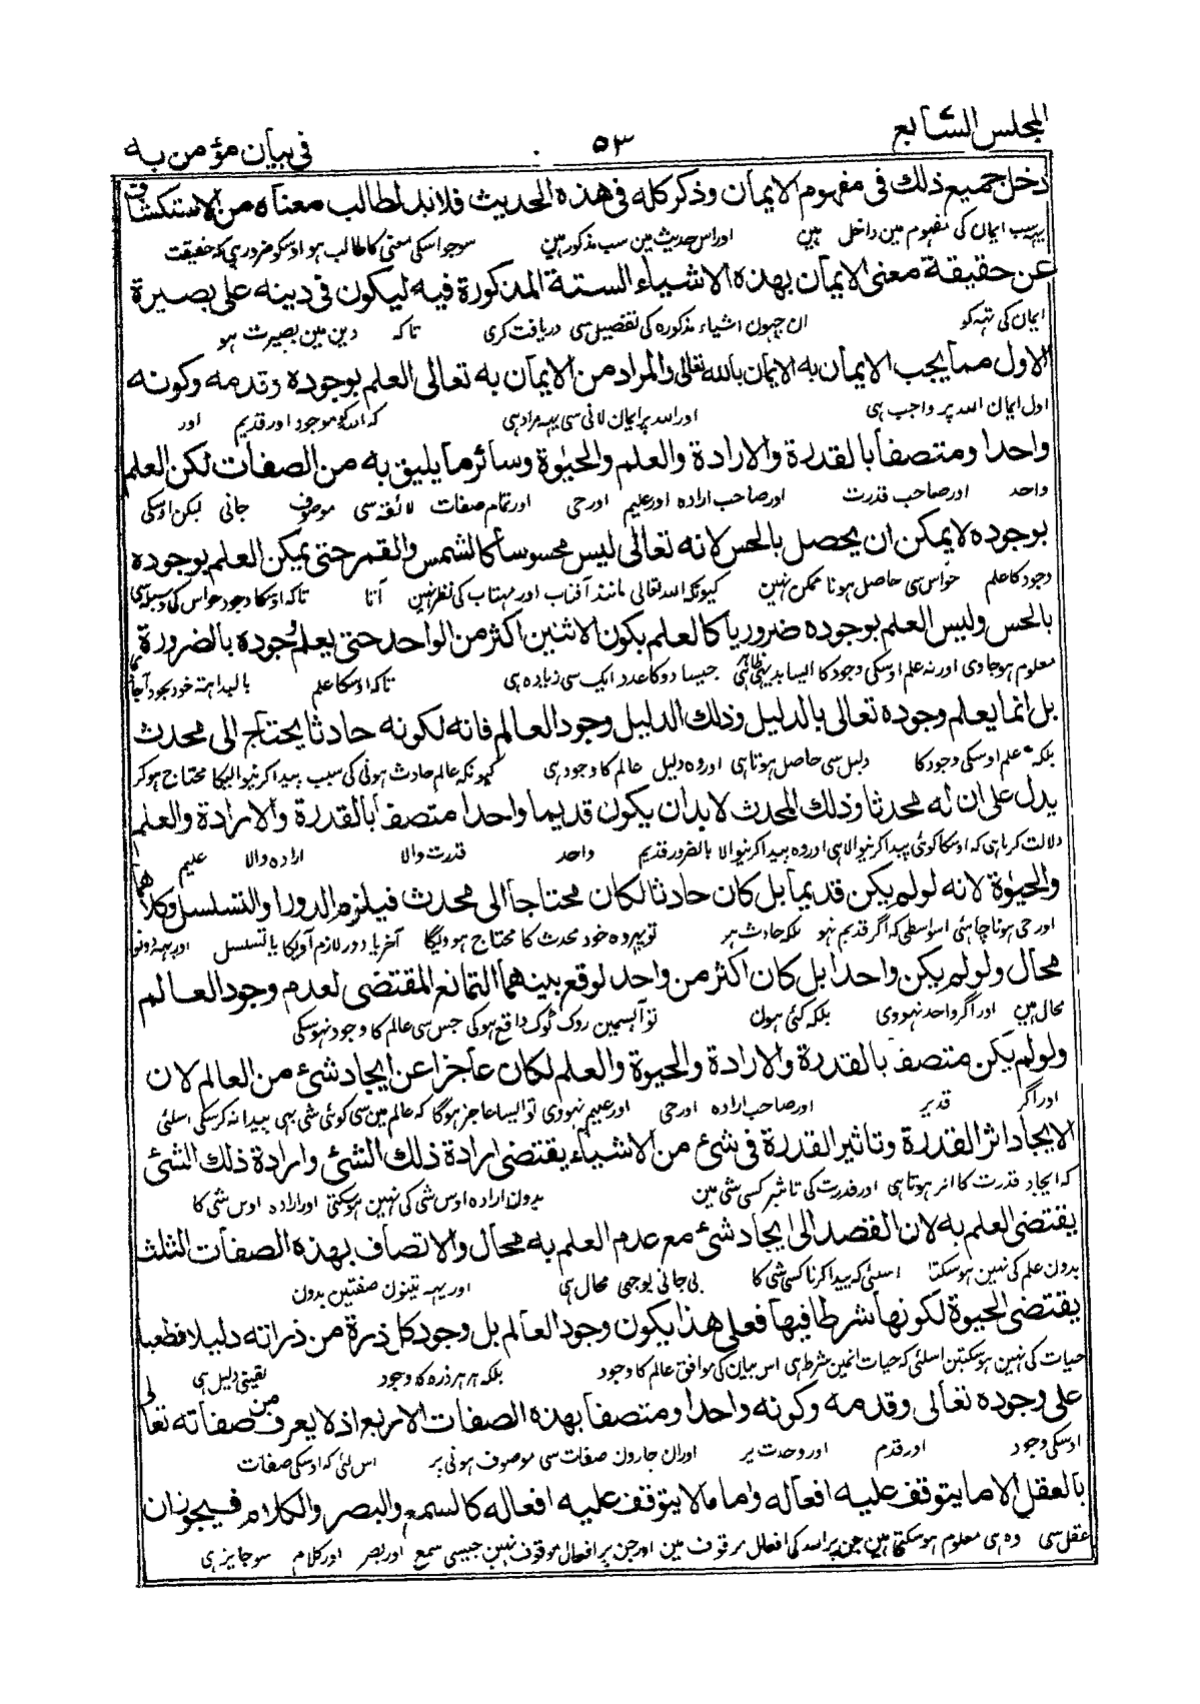 المجلس السابع ٥٣ في بيان مؤمن به
دخل جميع ذلك في مفهوم الايمان وذكر كله في هذه الحديث فلا بد لطالب معناه من الاستكشاف
یہہ سب ایمان کی مفہوم مین داخل ہین اور اس حدیث مین سب مذکور ہین سو جو اسکی معنی کا طالب ہو اوسکو ضروری کہ حقیقت
عن حقيقة معنى الايمان بهذه الاشياء الستة المذكورة فيه ليكون في دينه على بصيرة
ایمان کی تہہ کو ان چہون اشیاء مذکورہ کی تفصیل سی دریافت کری تاکہ دین مین بصیرت ہو
الاول مما يجب الايمان به الايمان بالله تعالى والمراد من الايمان به تعالى العلم بوجوده وقدمه وكونه
اول ایمان اللہ پر واجب ہی اور اللہ پر ایمان لانی سی یہہ مراد ہی کہ اللہ کو موجود اور قدیم اور
واحدا ومتصفا بالقدرة والارادة والعلم والحيوة وسائر ما يليق به من الصفات لكن العلم
واحد اور صاحب قدرت اور صاحب ارادہ اور علیم اور حی اور تمام صفات لائقہ سی موصوف جانی لیکن اوسکی
بوجوده لا يمكن ان يحصل بالحس لانه تعالى ليس محسوسا كالشمس والقمر حتى يمكن العلم بوجوده
وجود کا علم حواس سی حاصل ہونا ممکن نہین کیونکہ اللہ تعالی مانند آفتاب اور مہتاب کی نظر نہین آتا تاکہ اوسکا وجود حواس کی وسیلہ سی
بالحس وليس العلم بوجوده ضروريا كالعلم بكون الاثنين اكثر من الواحد حتى يعلم وجوده بالضرورة
معلوم ہو جاوی اور نہ علم اوسکی وجود کا ایسا بدیہی ظاہر ہی جیسا دو کا عدد ایک سی زیادہ ہی تاکہ اوسکا علم بالبداہتہ خود بخود آجا
بل انما يعلم وجوده تعالى بالدليل وذلك الدليل وجود العالم فانه لكونه حادثا يحتاج الى محدث
بلکہ علم اوسکی وجود کا دلیل سی حاصل ہوتا ہی اور وہ دلیل عالم کا وجود ہی کیونکہ عالم حادث ہونی کی سبب پیدا کرنیوالیکا محتاج ہو کر
يدل على ان له محدثا وذلك المحدث لا بد ان يكون قديما واحدا متصفا بالقدرة والارادة والعلم
دلالت کرتا ہی کہ اوسکا کوئی پیدا کرنیوالا ہی اور وہ پیدا کرنیوالا بالضرور قدیم واحد قدرت والا ارادہ والا علیم
والحيوة لانه لو لم يكن قديما بل كان حادثا لكان محتاجا الى محدث فيلزم الدور او التسلسل وكلاهما
اور حی ہونا چاہئی اسواسطی کہ اگر قدیم نہو بلکہ حادث ہر تو یہہ وہ خود محدث کا محتاج ہوویگا آخر یا دور لازم آویگا یا تسلسل اور یہہ دونو
محال ولو لم يكن واحدا بل كان اكثر من واحد لوقع بينهما التمانع المقتضى لعدم وجود العالم
محال ہین اور اگر واحد نہووی بلکہ کئی ہون تو آپسمین روک ٹوک واقع ہو کی جس سی عالم کا وجود نہوسکی
ولو لم يكن متصفا بالقدرة والارادة والحيوة والعلم لكان عاجزا عن ايجاد شئ من العالم لان
اور اگر قدیر اور صاحب ارادہ اور حی اور علیم نہووی تو ایسا عاجز ہوگا کہ عالم مین سی کوئی شی بہی پیدا نہ کر سکی اسلئی
الايجاد اثر القدرة وتاثير القدرة في شئ من الاشياء يقتضى ارادة ذلك الشئ وارادة ذلك الشئ
کہ ایجاد قدرت کا اثر ہوتا ہی اور قدرت کی تاثیر کسی شی مین بدون ارادہ اوس شی کی نہین ہو سکتی اور ارادہ اوس شئی کا
يقتضى العلم به لان القصد الى ايجاد شئ مع عدم العلم به محال والاتصاف بهذه الصفات الثلث
بدون علم کی نہین ہو سکتا اسلئی کہ پیدا کرنا کسی شی کا بی جانی بوجہی محال ہی اور یہہ تینون صفتین بدون
يقتضى الحيوة لكونها شرطا فيها فعلى هذا يكون وجود العالم بل وجود كل ذرة من ذراته دليلا قطعيا
حیات کی نہین ہو سکتین اسلئی کہ حیات انمین شرط ہی اس بیان کی موافق عالم کا وجود بلکہ ہر ہر ذرہ کا وجود یقینی دلیل ہی
على وجوده تعالى وقدمه وكونه واحدا ومتصفا بهذه الصفات الاربع اذ لا يعرف من صفاته تعالى
اوسکی وجود اور قدم اور وحدت پر اور ان چارون صفات سی موصوف ہونی پر اس لئی کہ اوسکی صفات
بالعقل الا ما يتوقف عليه افعاله واما ما لا يتوقف عليه افعاله كالسمع والبصر والكلام فيجوز ان
عقل سی وہ ہی معلوم ہو سکتی ہین جن پر اللہ کی افعال موقوف ہین اور جن پر افعال موقوف نہین جیسی سمع اور بصر اور کلام سو جایز ہی